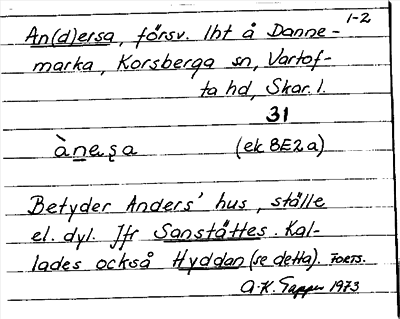 1-2
An(d)ersa, försv. lht å Danne-
marka, Korsberga sn, Vartof-
ta hd, Skar. l.
31
ànęʂa (ek 8E2a)
Betyder Anders' hus, ställe
el. dyl. Jfr Sanstättes. Kal-
lades också Hyddan (se detta). FORTS.
A-K. Tapper 1973